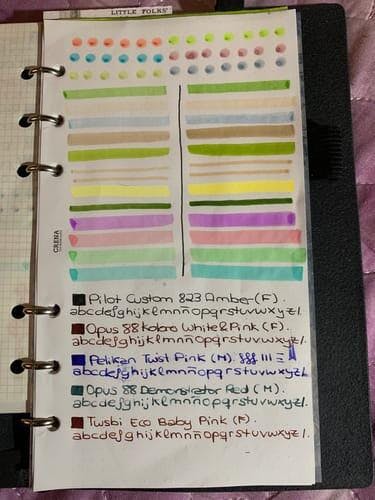 LITTLE FOLKS
CRENA
Pilot Custom 823 Amber (F).
abcdefghijklmnñopqrstuvwxyz/.
Opus 88 Koloro White & Pink (F).
abcdefghijklmnñopqrstuvwxyz/.
Pelikan Twist Pink (M).
abcdefghijklmnñopqrstuvwxyz/.
Opus 88 Demonstrator Red (M).
abcdefghijklmnñopqrstuvwxyz/.
Twsbi Eco Baby Pink (F).
abcdefghijklmnñopqrstuvwxyz/.